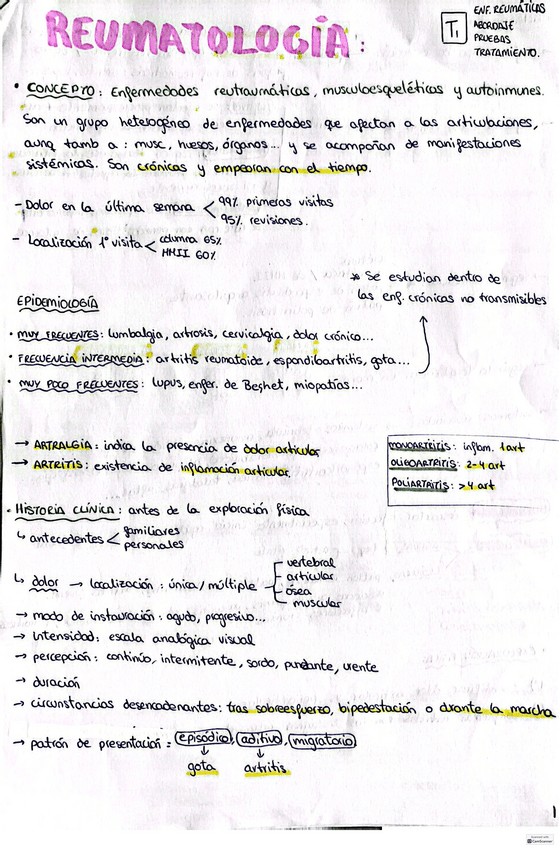 REUMATOLOGÍA:
T1
ENF. REUMÁTICAS
ABORDAJE
PRUEBAS
TRATAMIENTO.
• CONCEPTO: Enfermedades reutraumáticas, musculoesqueléticas y autoinmunes.
Son un grupo heterogéneo de enfermedades que afectan a las articulaciones,
aunq tamb a: musc, huesos, órganos... y se acompañan de manifestaciones
sistémicas. Son crónicas y empeoran con el tiempo.
- Dolor en la última semana < 99% primeras visitas
95% revisiones.
- Localización 1ª visita < columna 65%
MMII 60%
* Se estudian dentro de
las enf. crónicas no transmisibles
EPIDEMIOLOGÍA
• MUY FRECUENTES: lumbalgia, artrosis, cervicalgia, dolor crónico...
• FRECUENCIA INTERMEDIA: artritis reumatoide, espondiloartritis, gota...
• MUY POCO FRECUENTES: lupus, enfer. de Beçhet, miopatías...
→ ARTRALGIA: indica la presencia de dolor articular
→ ARTRITIS: existencia de inflamación articular.
MONOARTRITIS: inflam. 1 art
OLIGOARTRITIS: 2-4 art
POLIARTRITIS: >4 art
• HISTORIA CLÍNICA: antes de la exploración física
↳ antecedentes < familiares
personales
↳ dolor → localización: única/múltiple
vertebral
articular
ósea
muscular
→ modo de instauración: agudo, progresivo...
→ Intensidad: escala analógica visual
→ percepción: continúo, intermitente, sordo, punzante, urente
→ duración
→ circunstancias desencadenantes: tras sobreesfuerzo, bipedestación o durante la marcha
→ patrón de presentación: episódico, aditivo, migratorio
↓ ↓
gota artritis
1
CamScanner